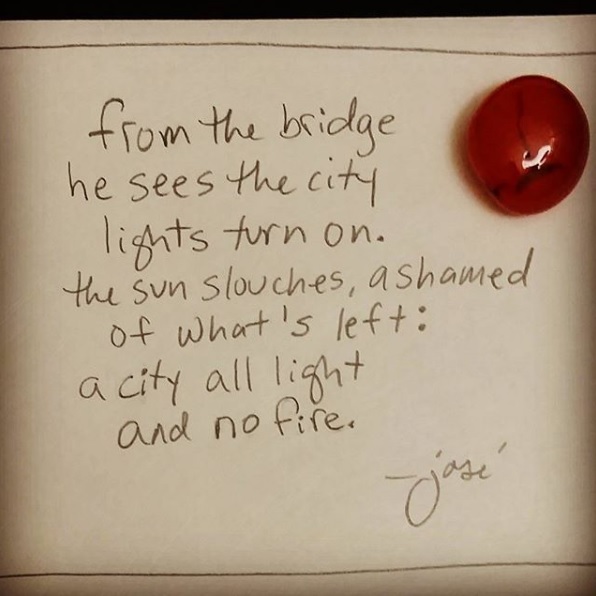 from the bridge
he sees the city
lights turn on.
the sun slouches, ashamed
of what's left:
a city all light
and no fire.
—josé